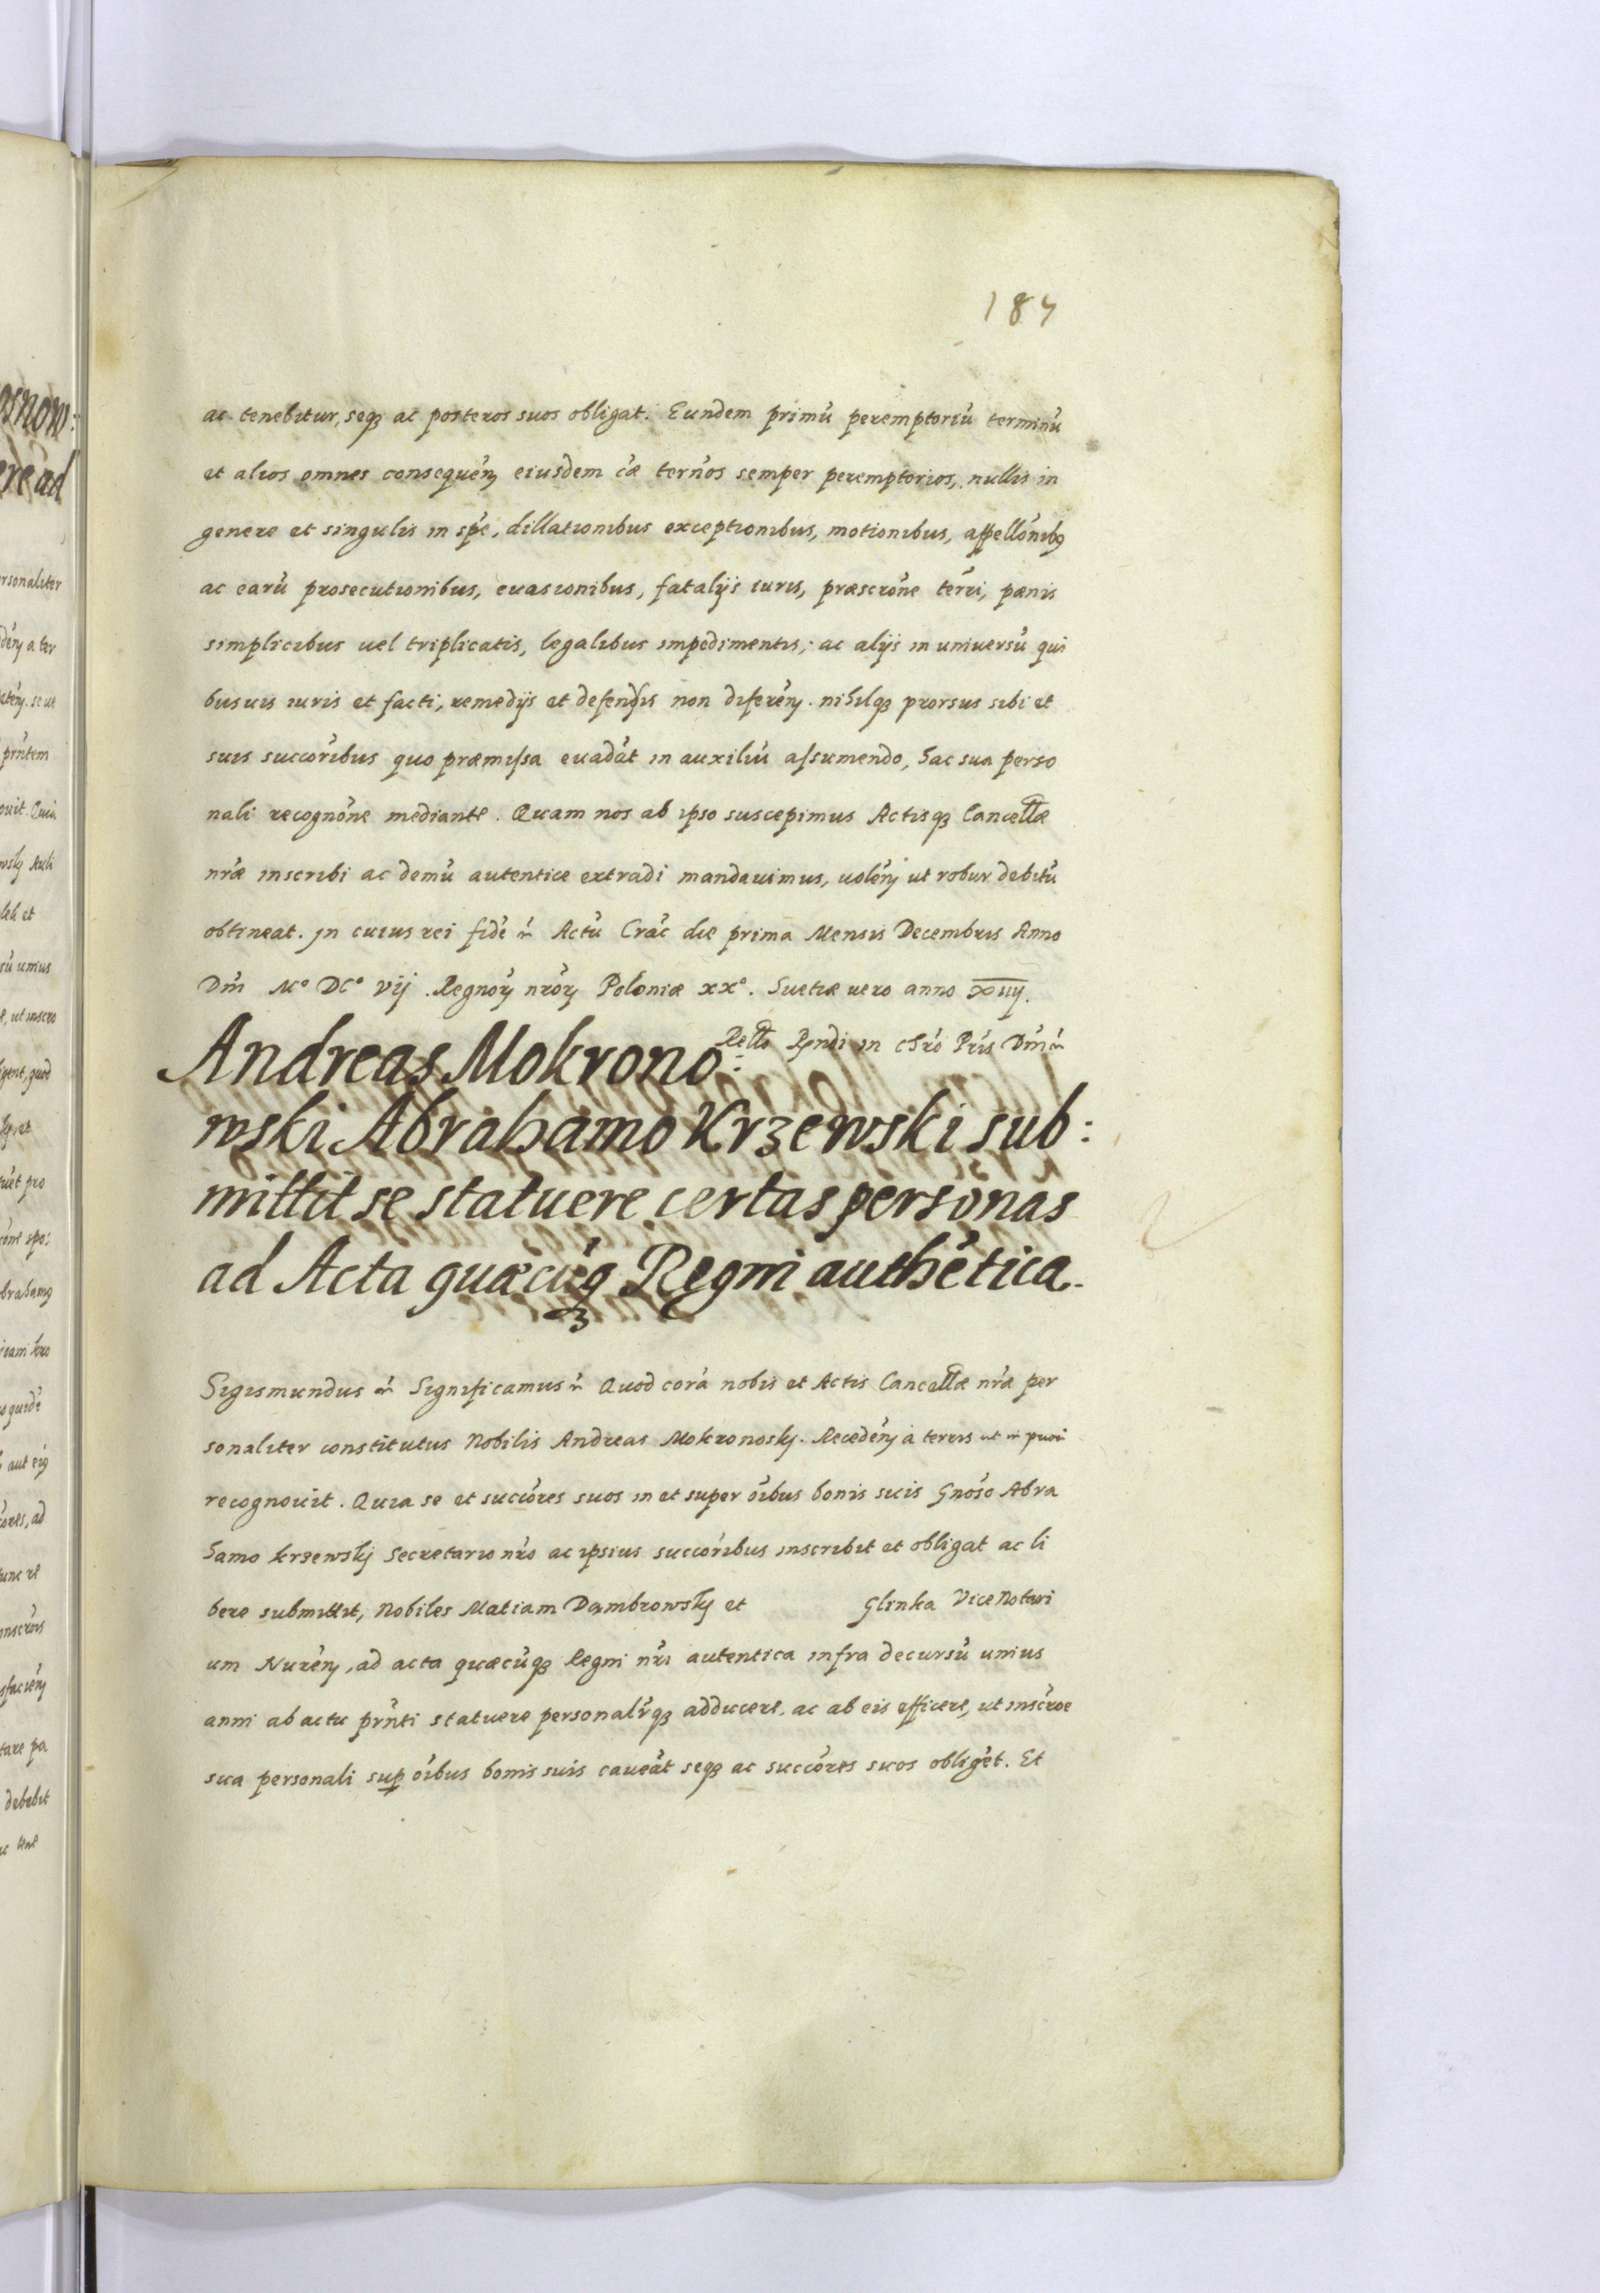 187
ac tenebitur, seqȝ ac posteros suos obligat. Eundem primū peremptoriū terminū
et alios omnes consequēn eiusdem cāe ternōs semper peremptorios, nullis in
genere et singulis in spē, dillationibus exceptionibus, motionibus, appellōnibꝯ
ac earū prosecutionibus, euasionibus, fatalijs iuris, præscrōne terri, pænis
simplicibus uel triplicatis, legalibus impedimentis, ac alijs in universū qui
busuis iuris et facti, remedijs et defensis non diferēn. nihilqȝ prorsus sibi et
suis succoribus quo præmissa euadāt in auxiliū assumendo, hac sua perso
nali recognōne mediante. Quam nos ab ipso suscepimus Actisqȝ Cancellæ
nræ inscribi ac demū autentice extradi mandauimus, uolēn ut robur debitū
obtineat. In cuius rei fidē &c. Actū Crac̄ die prima Mensis Decembris Anno
Dnī Mº DCº vij. Regnoꝝ nroꝝ Poloniæ xxº. Suetiæ uero anno xiiij.
Rello Rndi in chrō Pris Dnī &c.
Andreas Mokrono:
wski Abrahamo Krzewski sub:
mittit se statuere certas personas
ad Acta quæcūqȝ Regni authētica.
Sigismundus &c. Significamus &c. Quod corā nobis et Actis Cancellæ nræ per
sonaliter constitutus Nobilis Andreas Mokronosky. Recedēn a terris ut in priori
recognouit. Quia se et succōres suos in et super ōibus bonis suis Gnōso Abra
hamo Krzewskj Secretario nrō ac ipsius succōribus inscribit et obligat ac li
bere submittit, Nobiles Matiam Dąmbrowskÿ et Glinka ViceNotari
um Nurēn, ad acta quæcūqȝ Regni nrī autentica infra decursū unius
anni ab actu prn̄ti statuere personalrqȝ adducere, ac ab eis efficere, ut inscrōe
sua personali sup ōibus bonis suis caueāt seqȝ ac succōres suos obligēt. Et